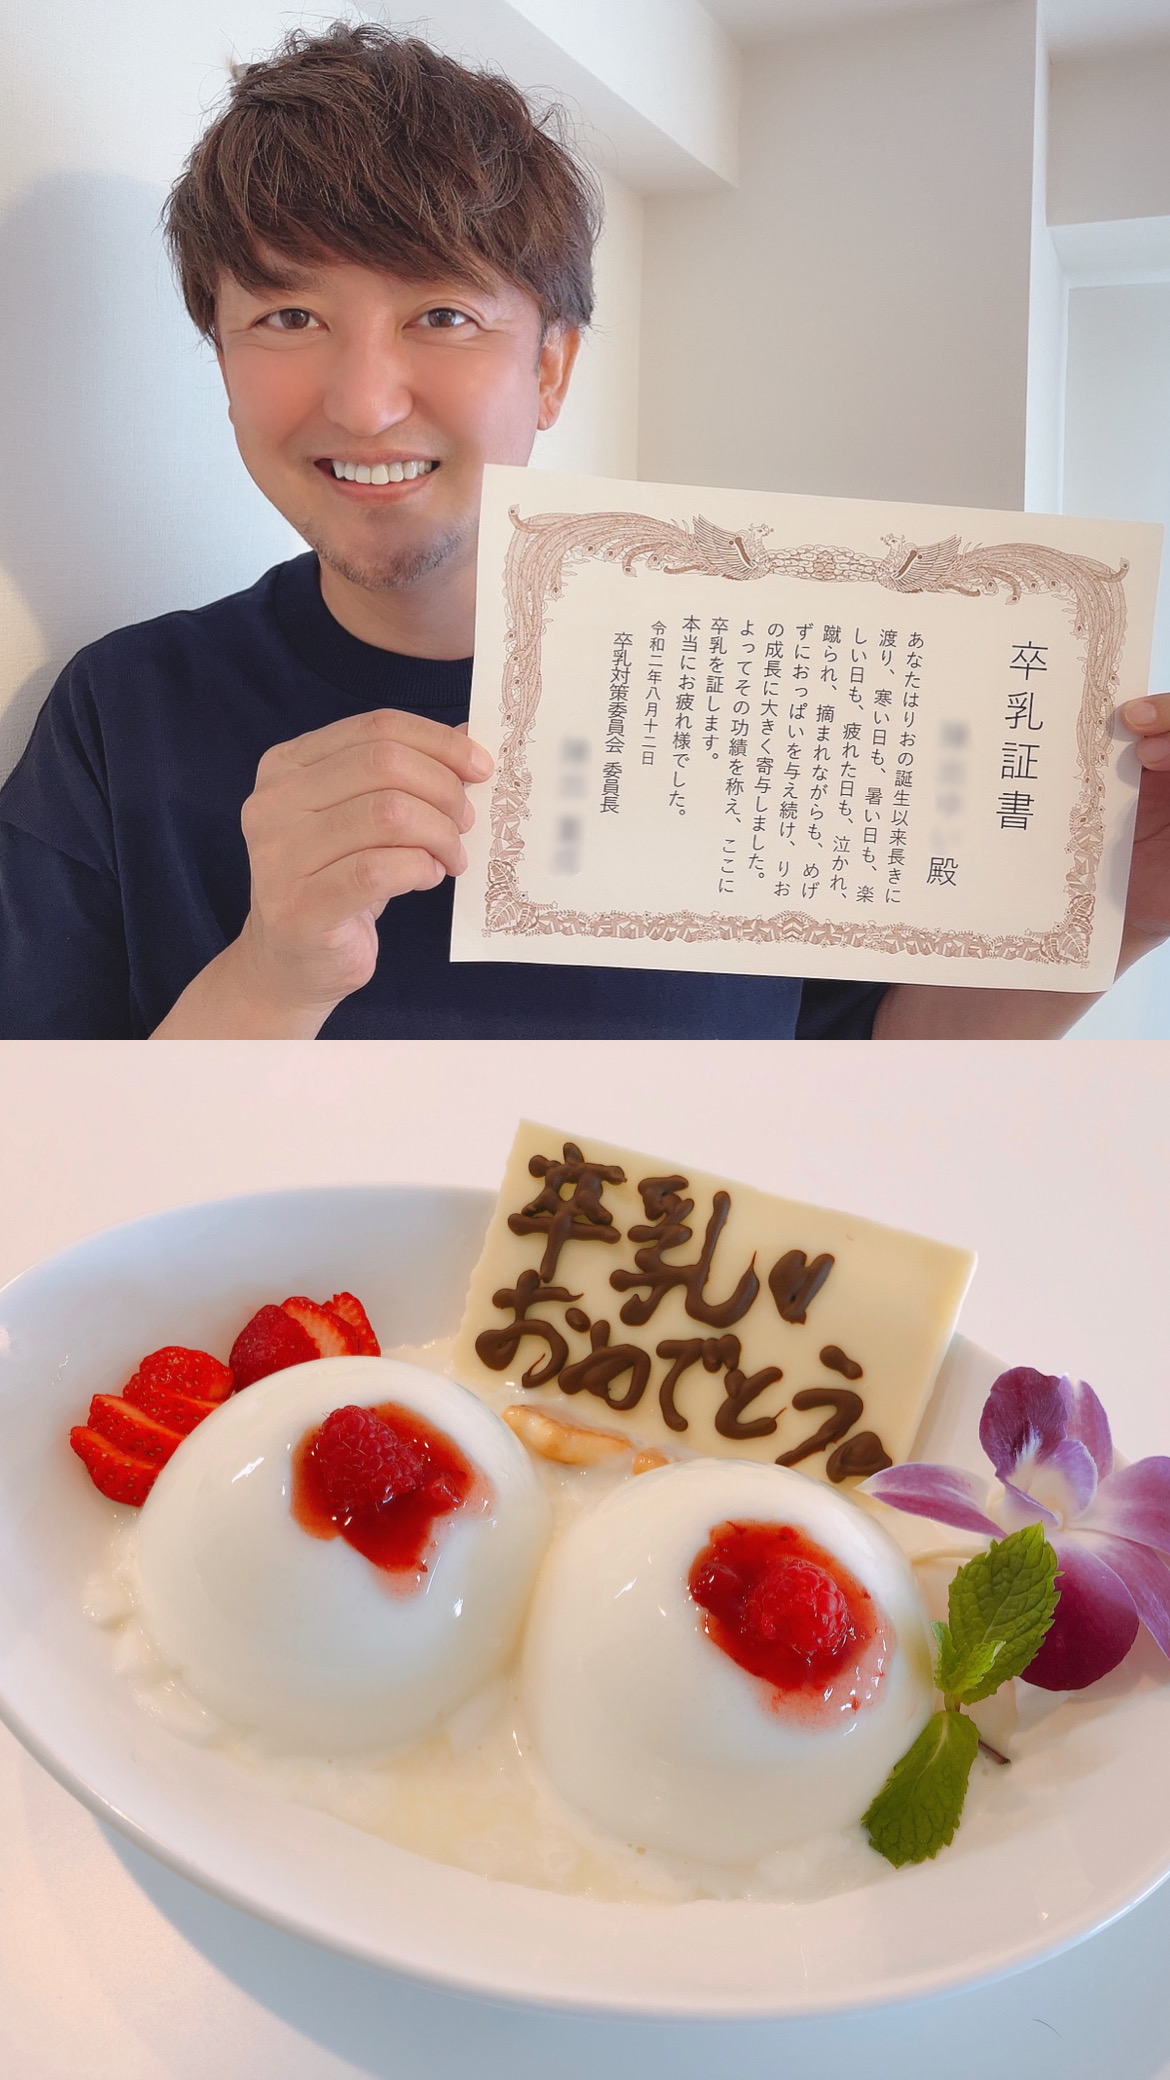 卒乳証書
殿
あなたはりおの誕生以来長きに
渡り、寒い日も、暑い日も、楽
しい日も、疲れた日も、泣かれ、
蹴られ、摘まれながらも、めげ
ずにおっぱいを与え続け、りお
の成長に大きく寄与しました。
よってその功績を称え、ここに
卒乳を証します。
本当にお疲れ様でした。
令和二年八月十二日
卒乳対策委員会 委員長
卒乳♥
おめでとう。